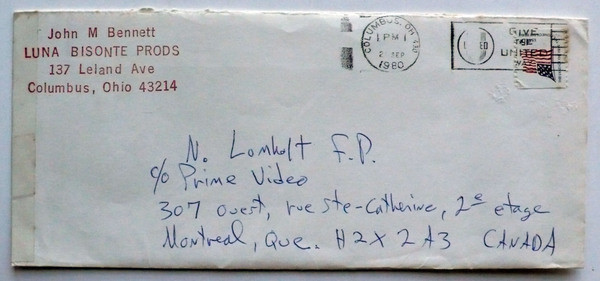 John M Bennett
LUNA BISONTE PRODS
137 Leland Ave
Columbus, Ohio 43214
COLUMBUS, OH
1 PM
SEP
1980
GIVE
THE
UNITED
WAY
N. Lomholt F.P.
c/o Prime Video
307 ouest, rue Ste-Catherine, 2e etage
Montreal, Que. H2X 2A3 CANADA